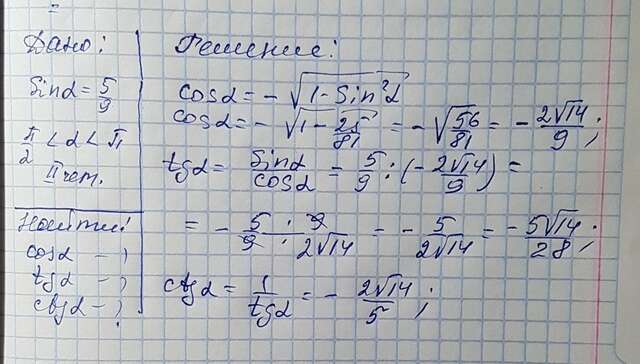 Дано:
sinα = 5/9
π/2 < α < π
II чет.
Найти:
cosα - ?
tgα - ?
ctgα - ?
Решение:
cosα = - √(1 - sin²α)
cosα = - √(1 - 25/81) = - √(56/81) = - 2√14/9;
tgα = sinα/cosα = 5/9 : (- 2√14/9) =
= - 5/9 · 9/2√14 = - 5/2√14 = - 5√14/28;
ctgα = 1/tgα = - 2√14/5;